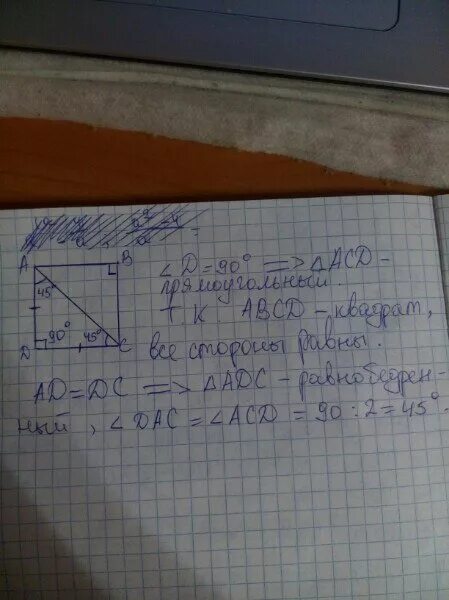 A B
45°
90° 45°
D C
∠D = 90° => △ACD –
прямоугольный.
т к ABCD – квадрат,
все стороны равны.
AD = DC => △ADC – равнобедрен-
ный, ∠DAC = ∠ACD = 90 : 2 = 45°.